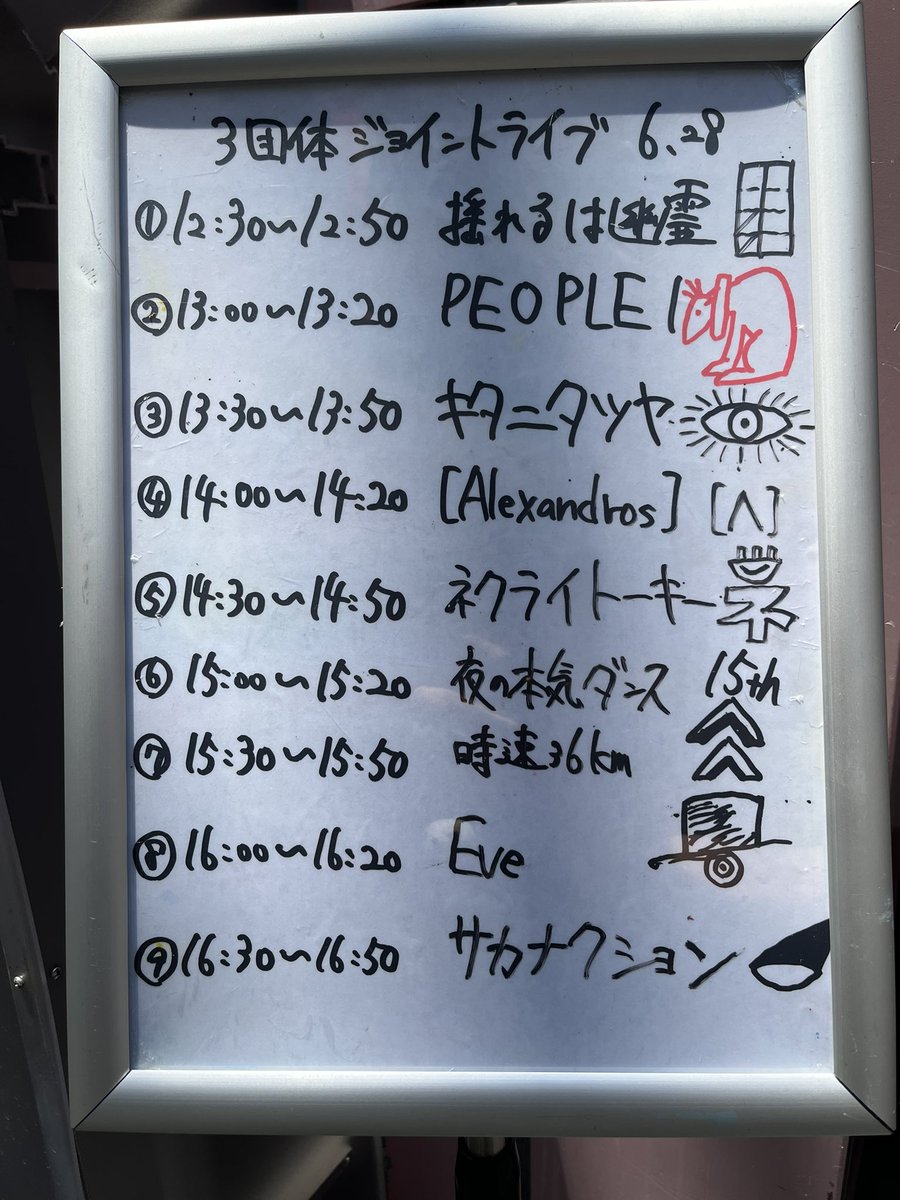 3団体ジョイントライブ 6.28
①12:30〜12:50 揺れるは幽霊
②13:00〜13:20 PEOPLE 1
③13:30〜13:50 キタニタツヤ
④14:00〜14:20 [Alexandros] [Λ]
⑤14:30〜14:50 ネクライトーキー ネ
⑥15:00〜15:20 夜の本気ダンス 15th
⑦15:30〜15:50 時速36km
⑧16:00〜16:20 Eve
⑨16:30〜16:50 サカナクション